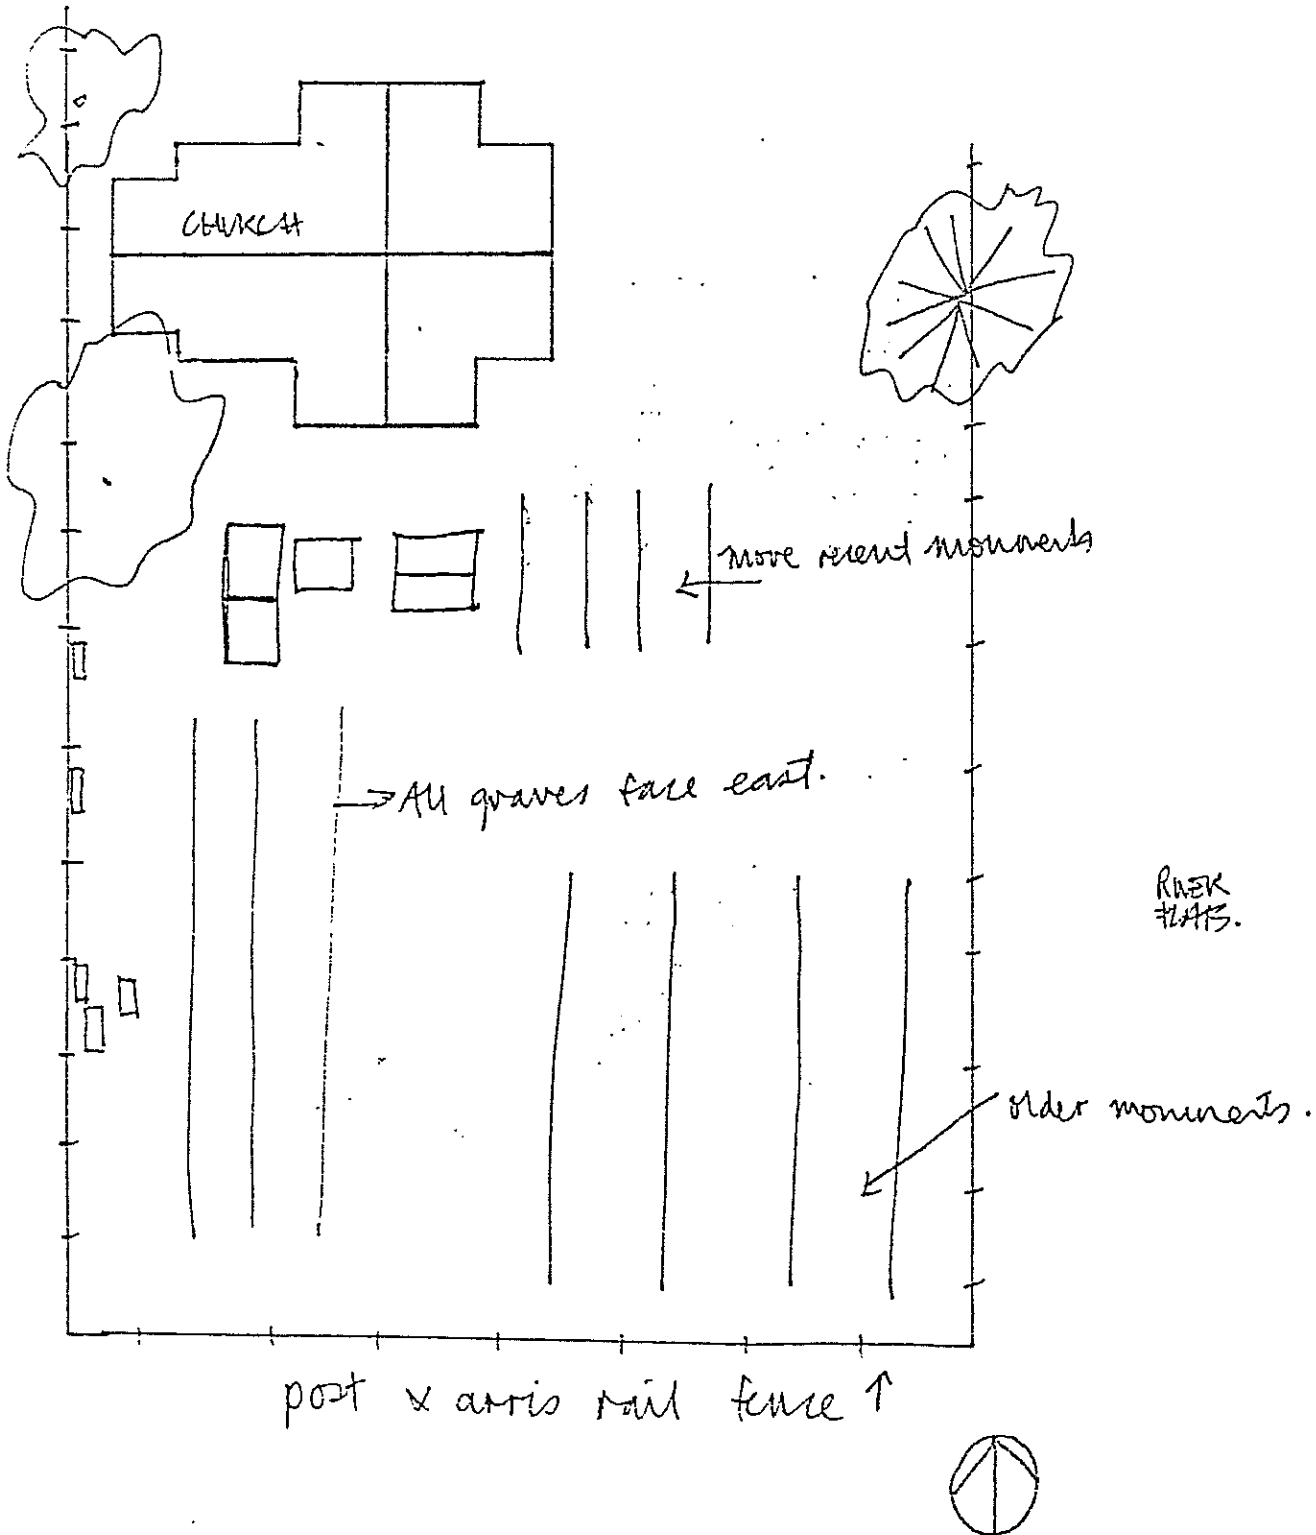 CHURCH
move recent monments
All graves face east.
RIVER
FLATS.
older monuments.
post & arris rail fence ↑